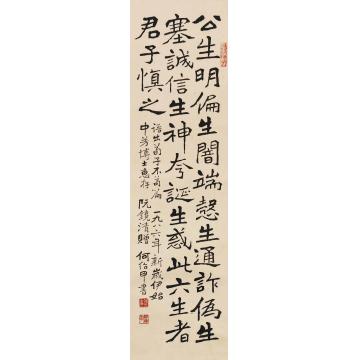 公生明偏生闇端愨生通詐偽生
塞誠信生神夸誕生惑此六生者
君子慎之
語出荀子不苟篇 一九八六年新歲伊始
中芳博士惠存 阮鏡清贈 何紹甲書